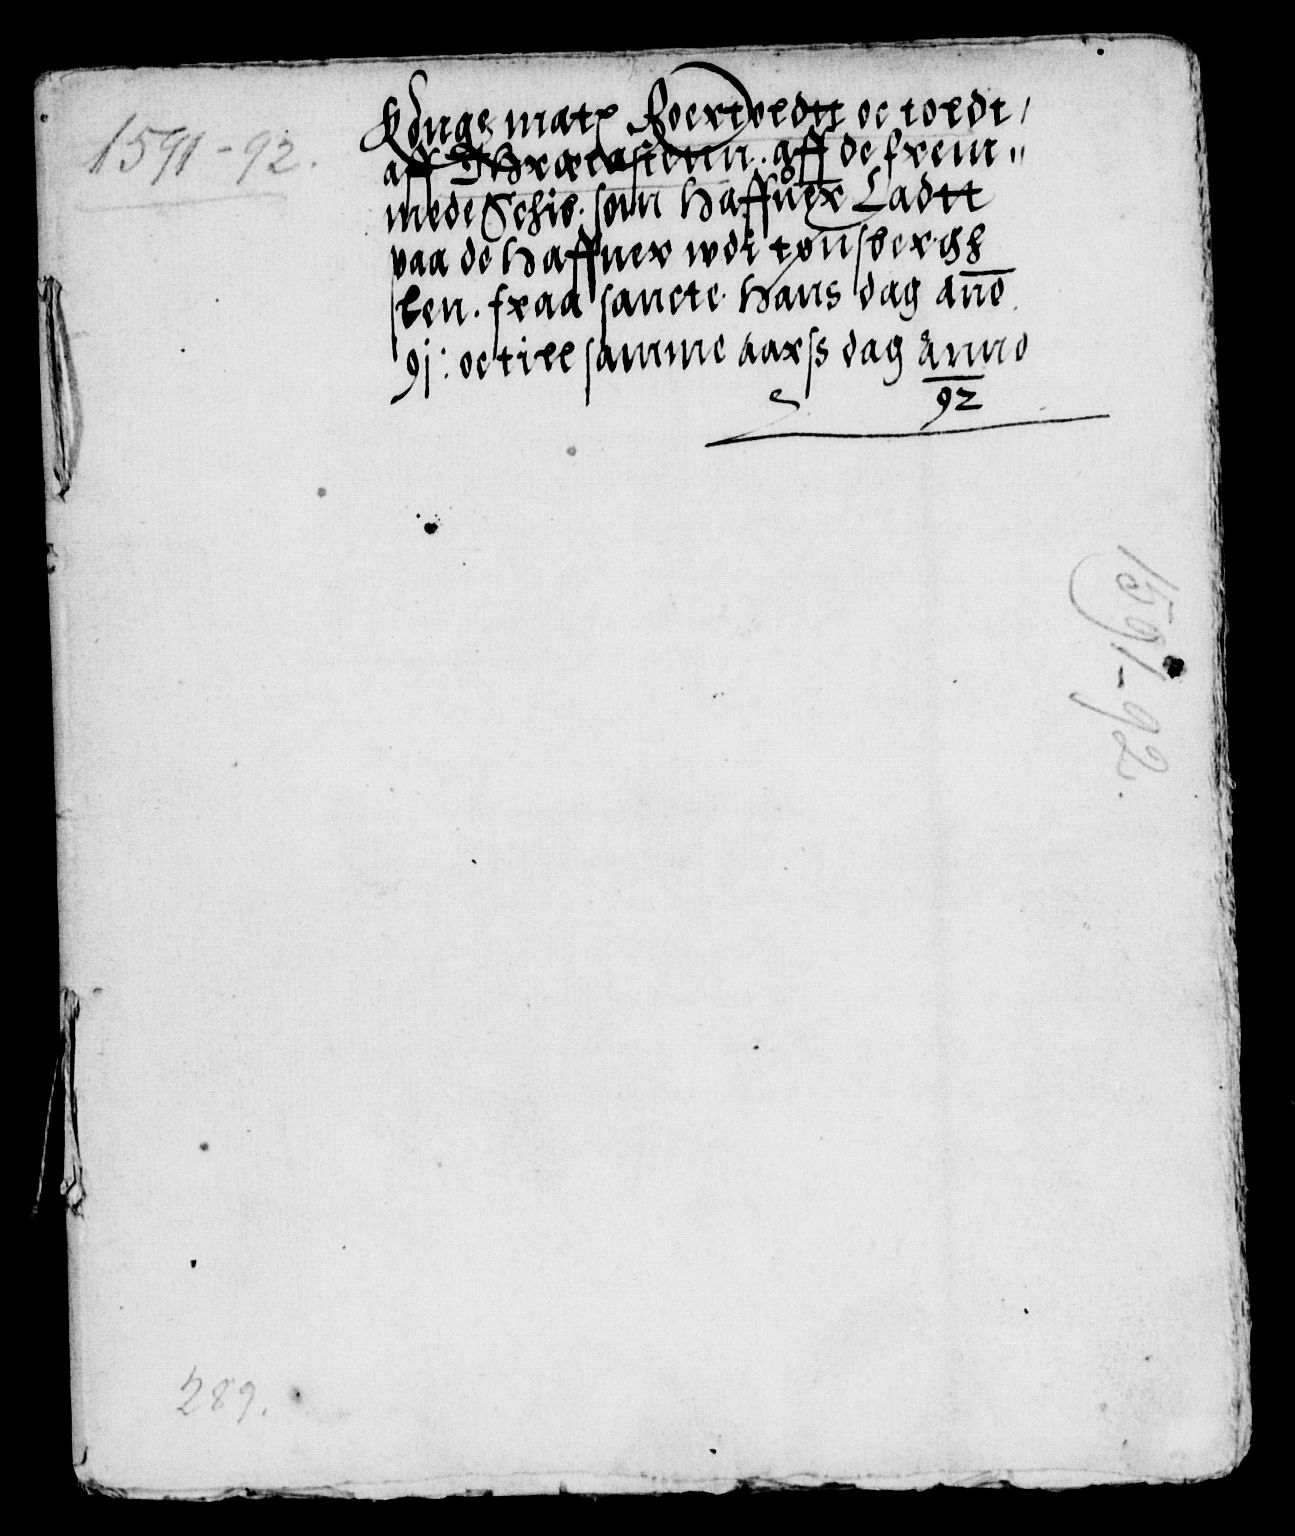 1591-92.
Konge matz Foertoldtt oc toldt
aff Threlastenn. aff de frem"
mede Schib. som Haffuer Ladtt
paa de Haffner wdi tønsbergh
len. fraa sancte Hans dag Año
91: oc till samme aarss dag Anno
92
1591-92.
289.